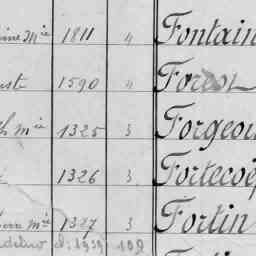 ine Mie 1811 4 Fontain
st 1590 4 Forest
h mie 1325 3 Forgeou
1326 3 Fortecoë
mie 1327 3 Fortin
d: 1939 109